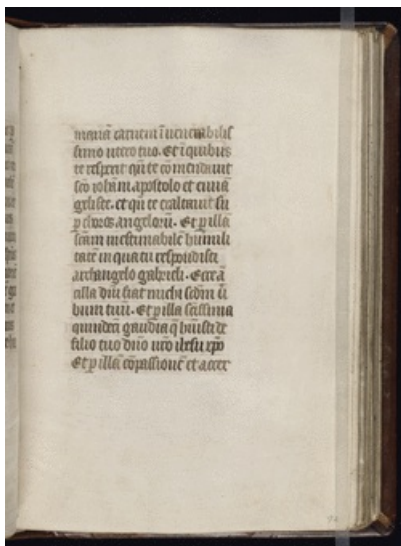 manā carnem ī venerabilis
simo utero tuo. Et ī quibus
te respexit qn̄ te cōmendavit
scō iohāni apostolo et evuā
geliste. et qn̄ te exaltavit sū
ꝑ choros angelorū. Et ꝑ illā
scām inestimabilē humili
tatē in qua tu respondisti
archangelo gabrieli. Ecce ā
cilla dn̄i fiat michi scdm̄ ū
bum tuū. Et ꝑ illa scīssima
quindeci gaudia q̄ huisti de
filio tuo dn̄o nrō ihesu xp̄o
Et ꝑ illā cōpassionē et acer